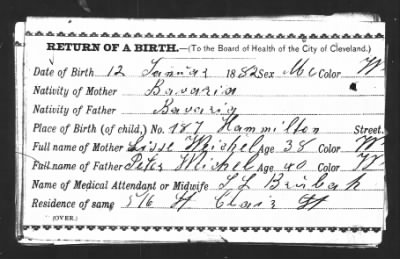 RETURN OF A BIRTH.—(To the Board of Health of the City of Cleveland.)
Date of Birth 12 Januar 1882 Sex Me Color W
Nativity of Mother Bavaria
Nativity of Father Bavaria
Place of Birth (of child,) No. 187 Hammilton Street.
Full name of Mother Lisse Michel Age 38 Color W
Full name of Father Peter Michel Age 40 Color W
Name of Medical Attendant or Midwife Brubach
Residence of same 576 St Clair St
(OVER.)